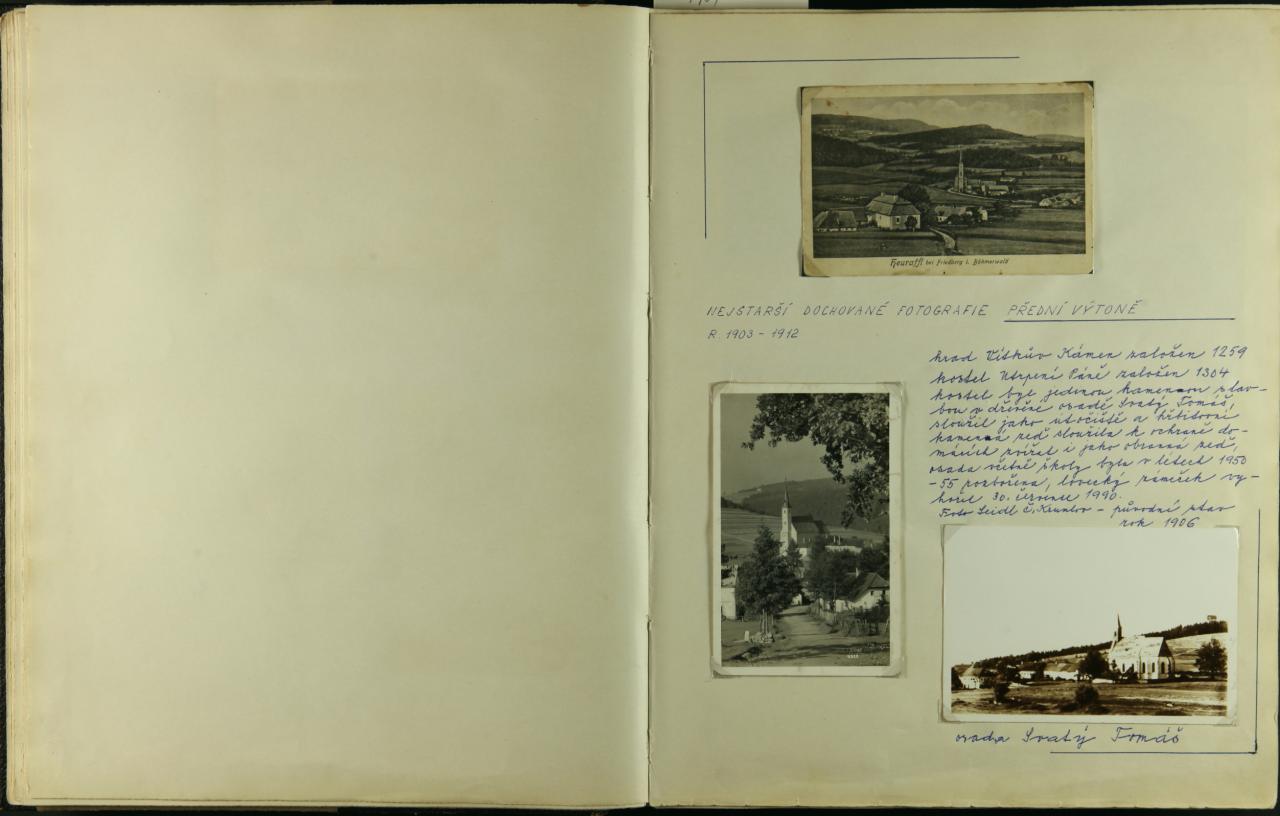 Heuraffl bei Friedberg i. Böhmerwald
NEJSTARŠÍ DOCHOVANÉ FOTOGRAFIE PŘEDNÍ VÝTONĚ
R. 1903 - 1912
hrad Vítkův Kámen založen 1259
kostel Utrpení Páně založen 1304
kostel byl jedinou kamennou stav-
bou v dřevěné osadě Svatý Tomáš,
sloužil jako útočiště a hřbitovní
kamenná zeď sloužila k ochraně do-
mácích zvířat i jako obranná zeď,
osada včetně školy byla v létech 1950
-55 rozbořena, lovecký zámeček vy-
hořel 30. července 1990.
Foto Seidl Č. Krumlov - původní stav
rok 1906
osada Svatý Tomáš